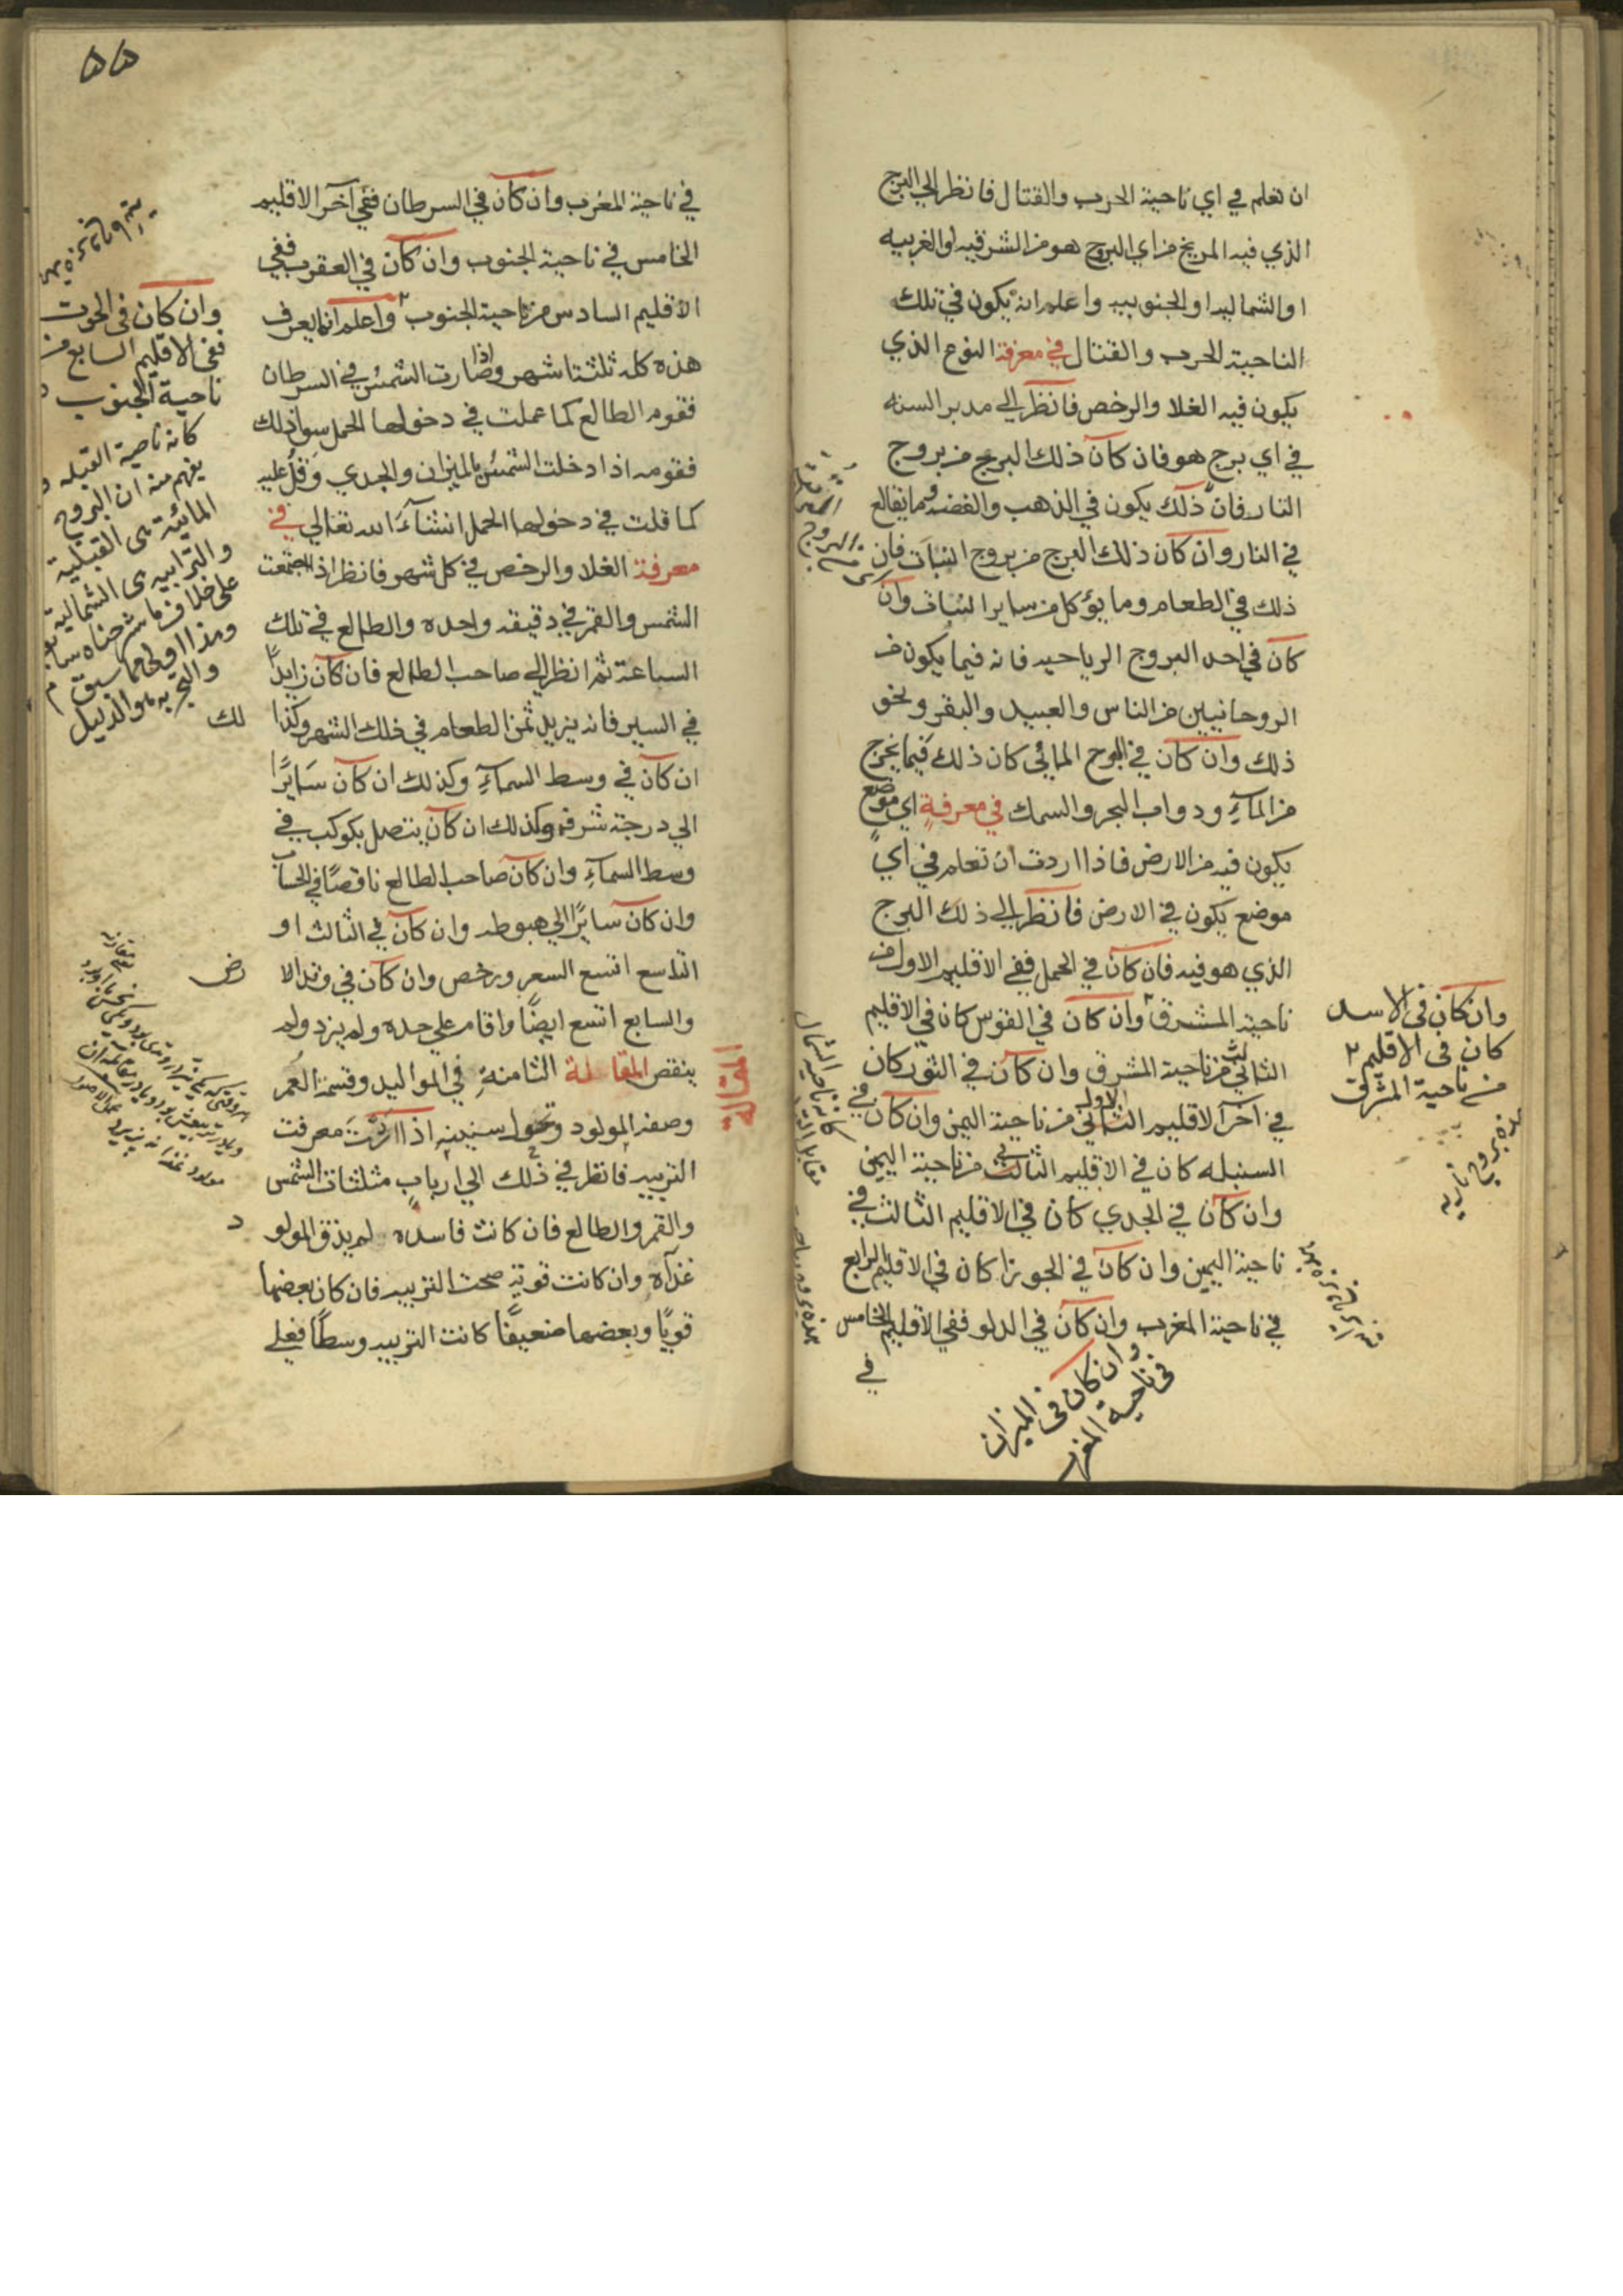 ان تعلم في اي ناحية الحرب والقتال فانظر الي البرج
الذي فيه المريخ من اي البروج هو من الشرقيه او الغربيه
او الشماليه او الجنوبيه واعلم انه يكون في تلك
الناحية الحرب والقتال في معرفة النوع الذي
يكون فيه الغلا والرخص فانظر الي مدبر السنه
في اي برج هو فان كان ذلك البرج من بروج
النار فان ذلك يكون في الذهب والفضه وما يعالج
في النار وان كان ذلك البرج من بروج النبات فان
ذلك في الطعام وما يؤكل من ساير النبات وان
كان في احد البروج الرياحيه فانه فيما يكون من
الروحانيين من الناس والعبيد والبقر ونحو
ذلك وان كان في البروج المائي كان ذلك فيما يخرج
من المآء ودواب البحر والسمك في معرفة اي موضع
يكون فيه من الارض فاذا اردت ان تعلم في اي
موضع يكون في الارض فانظر الي ذلك البرج
الذي هو فيه فان كان في الحمل ففي الاقليم الاول من
ناحية المشرق وان كان في القوس كان في الاقليم
الثاني من ناحية المشرق وان كان في الثور كان
في آخر الاقليم الثاني من ناحية اليمن وان كان في
السنبله كان في الاقليم الثالث من ناحية اليمن
وان كان في الجدي كان في الاقليم الثالث في
ناحية اليمين وان كان في الجوزا كان في الاقليم الرابع
في ناحية المغرب وان كان في الدلو ففي الاقليم الخامس
في
وان كان في الميزان
في ناحية المغرب
وان كان في الاسد
كان في الاقليم ٢
من ناحية المشرق
هذه بروج ناريه
٥٥
في ناحية المغرب وان كان في السرطان ففي آخر الاقليم
الخامس في ناحية الجنوب وان كان في العقرب ففي
الاقليم السادس من ناحية الجنوب واعلم انما يعرف
هذه كله ثلثة اشهر واذا صارت الشمس في السرطان
فقوم الطالع كما عملت في دخولها الحمل سوا وكذلك
فقومه اذا دخلت الشمس بالميزان والجدي وقل عليه
كما قلت في دخولها الحمل انشآء الله تعالي في
معرفة الغلا والرخص في كل شهر فانظر اذا اجتمعت
الشمس والقمر في دقيقه واحده والطالع في تلك
الساعة ثم انظر الي صاحب الطالع فان كان زايدًا
في السير فانه يزيد ثمن الطعام في ذلك الشهر وكذا
ان كان في وسط السمآء وكذلك ان كان سَايرًا
الي درجة شرفه وكذلك ان كان يتصل بكوكب في
وسط السمآء وان كان صاحب الطالع ناقصًا في الحساب
وان كان سايرًا الي هبوطه وان كان في الثالث او
التاسع اتسع السعر ورخص وان كان في وتد الا
رض
والسابع اتسع ايضًا واقام علي حده ولم يزد ولم
ينقص المقالة الثامنة في المواليد وقسمة العمر
المقالة
وصفة المولود وتحول سنينه اذا اردت معرفت
التربيه فانظر في ذلك الي ارباب مثلثات الشمس
والقمر والطالع فان كانت فاسده لم يذق المولو
د
غذآه وان كانت قوية صحت التربيه فان كان بعضها
قويًا وبعضها ضعيفًا كانت التربيه وسطًا فعلي
وان كان في الحوت
ففي الاقليم السابع من
ناحية الجنوب
كانه ناحية القبله
يفهم منه ان البروج
المائية هي القبلية
والترابيه هي الشمالية
على خلاف ما شرحناه سابقا
وهذا اولى مما سبق
والتجربه هو الدليل
لك